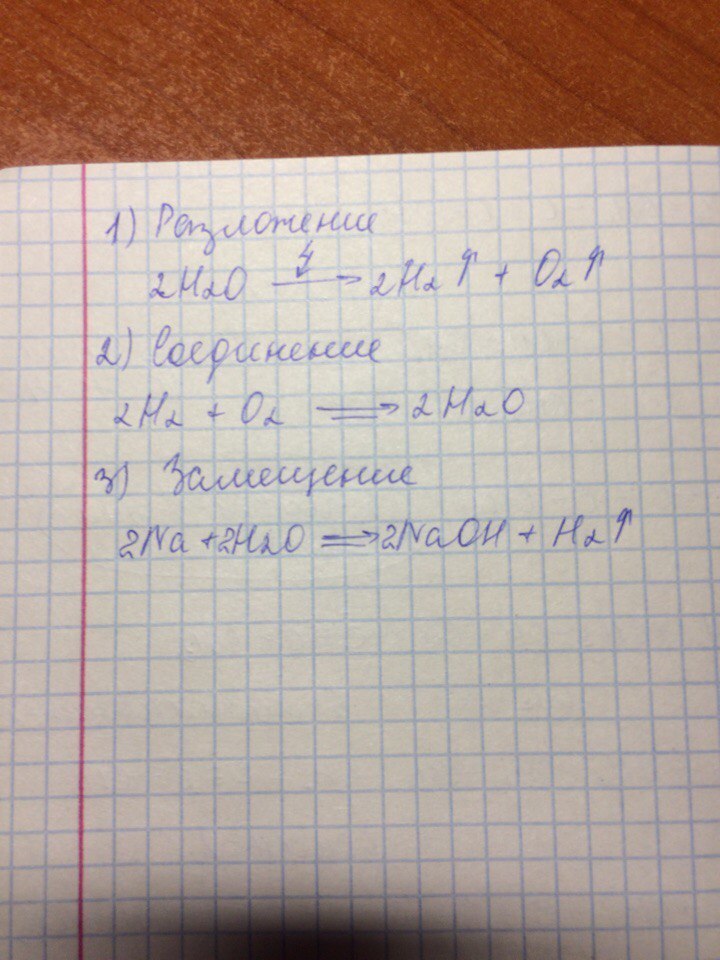 1) Разложение
2H2O ⟶ 2H2↑ + O2↑
2) Соединение
2H2 + O2 ⟹ 2H2O
3) Замещение
2Na + 2H2O ⟹ 2NaOH + H2↑